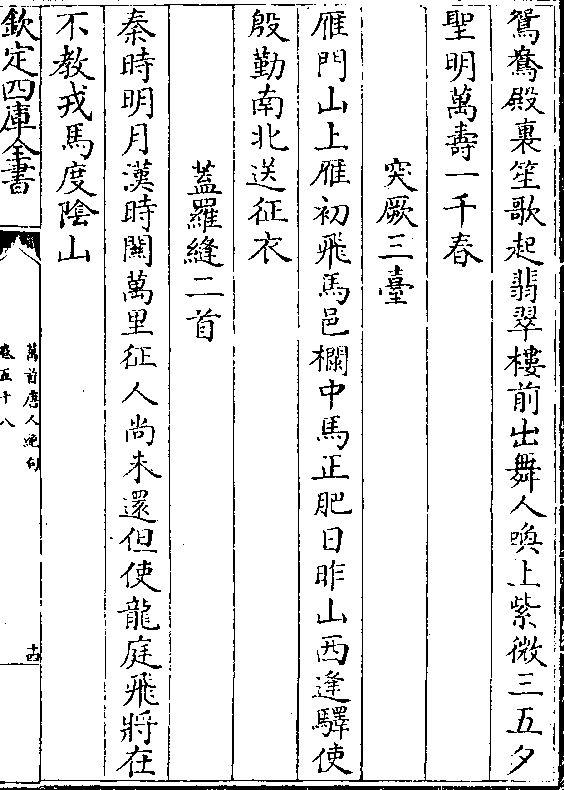 鴛鴦殿裏笙歌起翡翠樓前出舞人喚上紫微三五夕
聖明萬壽一千春
突厥三臺
雁門山上雁初飛馬邑欄中馬正肥日昨山西逢驛使
殷勤南北送征衣
蓋羅縫二首
秦時明月漢時關萬里征人尚未還但使龍庭飛將在
不教戎馬度陰山
欽定四庫全書
萬首唐人絶句
卷五十八
十四